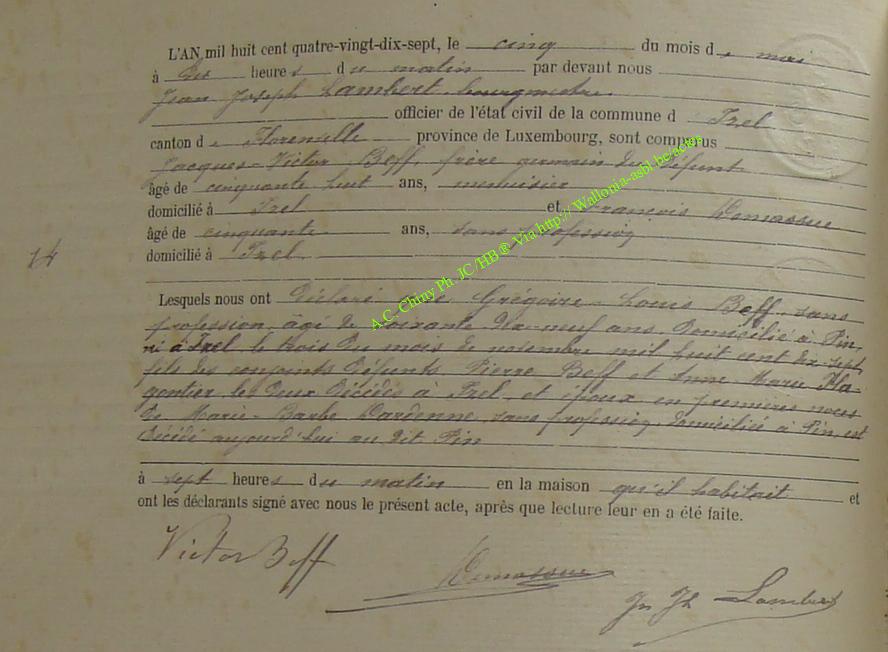 L'AN mil huit cent quatre-vingt-dix-sept, le cinq du mois de mai
à dix heures du matin par devant nous
Jean Joseph Lambert bourgmestre
officier de l'état civil de la commune d Izel
canton de Florenville province de Luxembourg, sont comparus
Jacques-Victor Beff, frère germain du défunt
âgé de cinquante huit ans, menuisier
domicilié à Izel et François Demassue
âgé de cinquante ans, sans profession
domicilié à Izel
14
Lesquels nous ont déclaré que Grégoire-Louis Beff, sans
profession, âgé de soixante dix-neuf ans, domicilié à Pin,
né à Izel le trois du mois de novembre mil huit cent dix-sept,
fils des conjoints défunts Pierre Beff et Anne-Marie
les deux décédés à Izel, et époux en premières noces
de Marie-Barbe Dardenne, sans profession, domiciliée à Pin, est
décédé aujourd'hui au dit Pin
à sept heures du matin en la maison qu'il habitait et
ont les déclarants signé avec nous le présent acte, après que lecture leur en a été faite.
Victor Beff
Demassue
Jn Jh Lambert
A.C. Chiny Ph. JC /HB® Via http:// Wallonia-asbl.be/actes